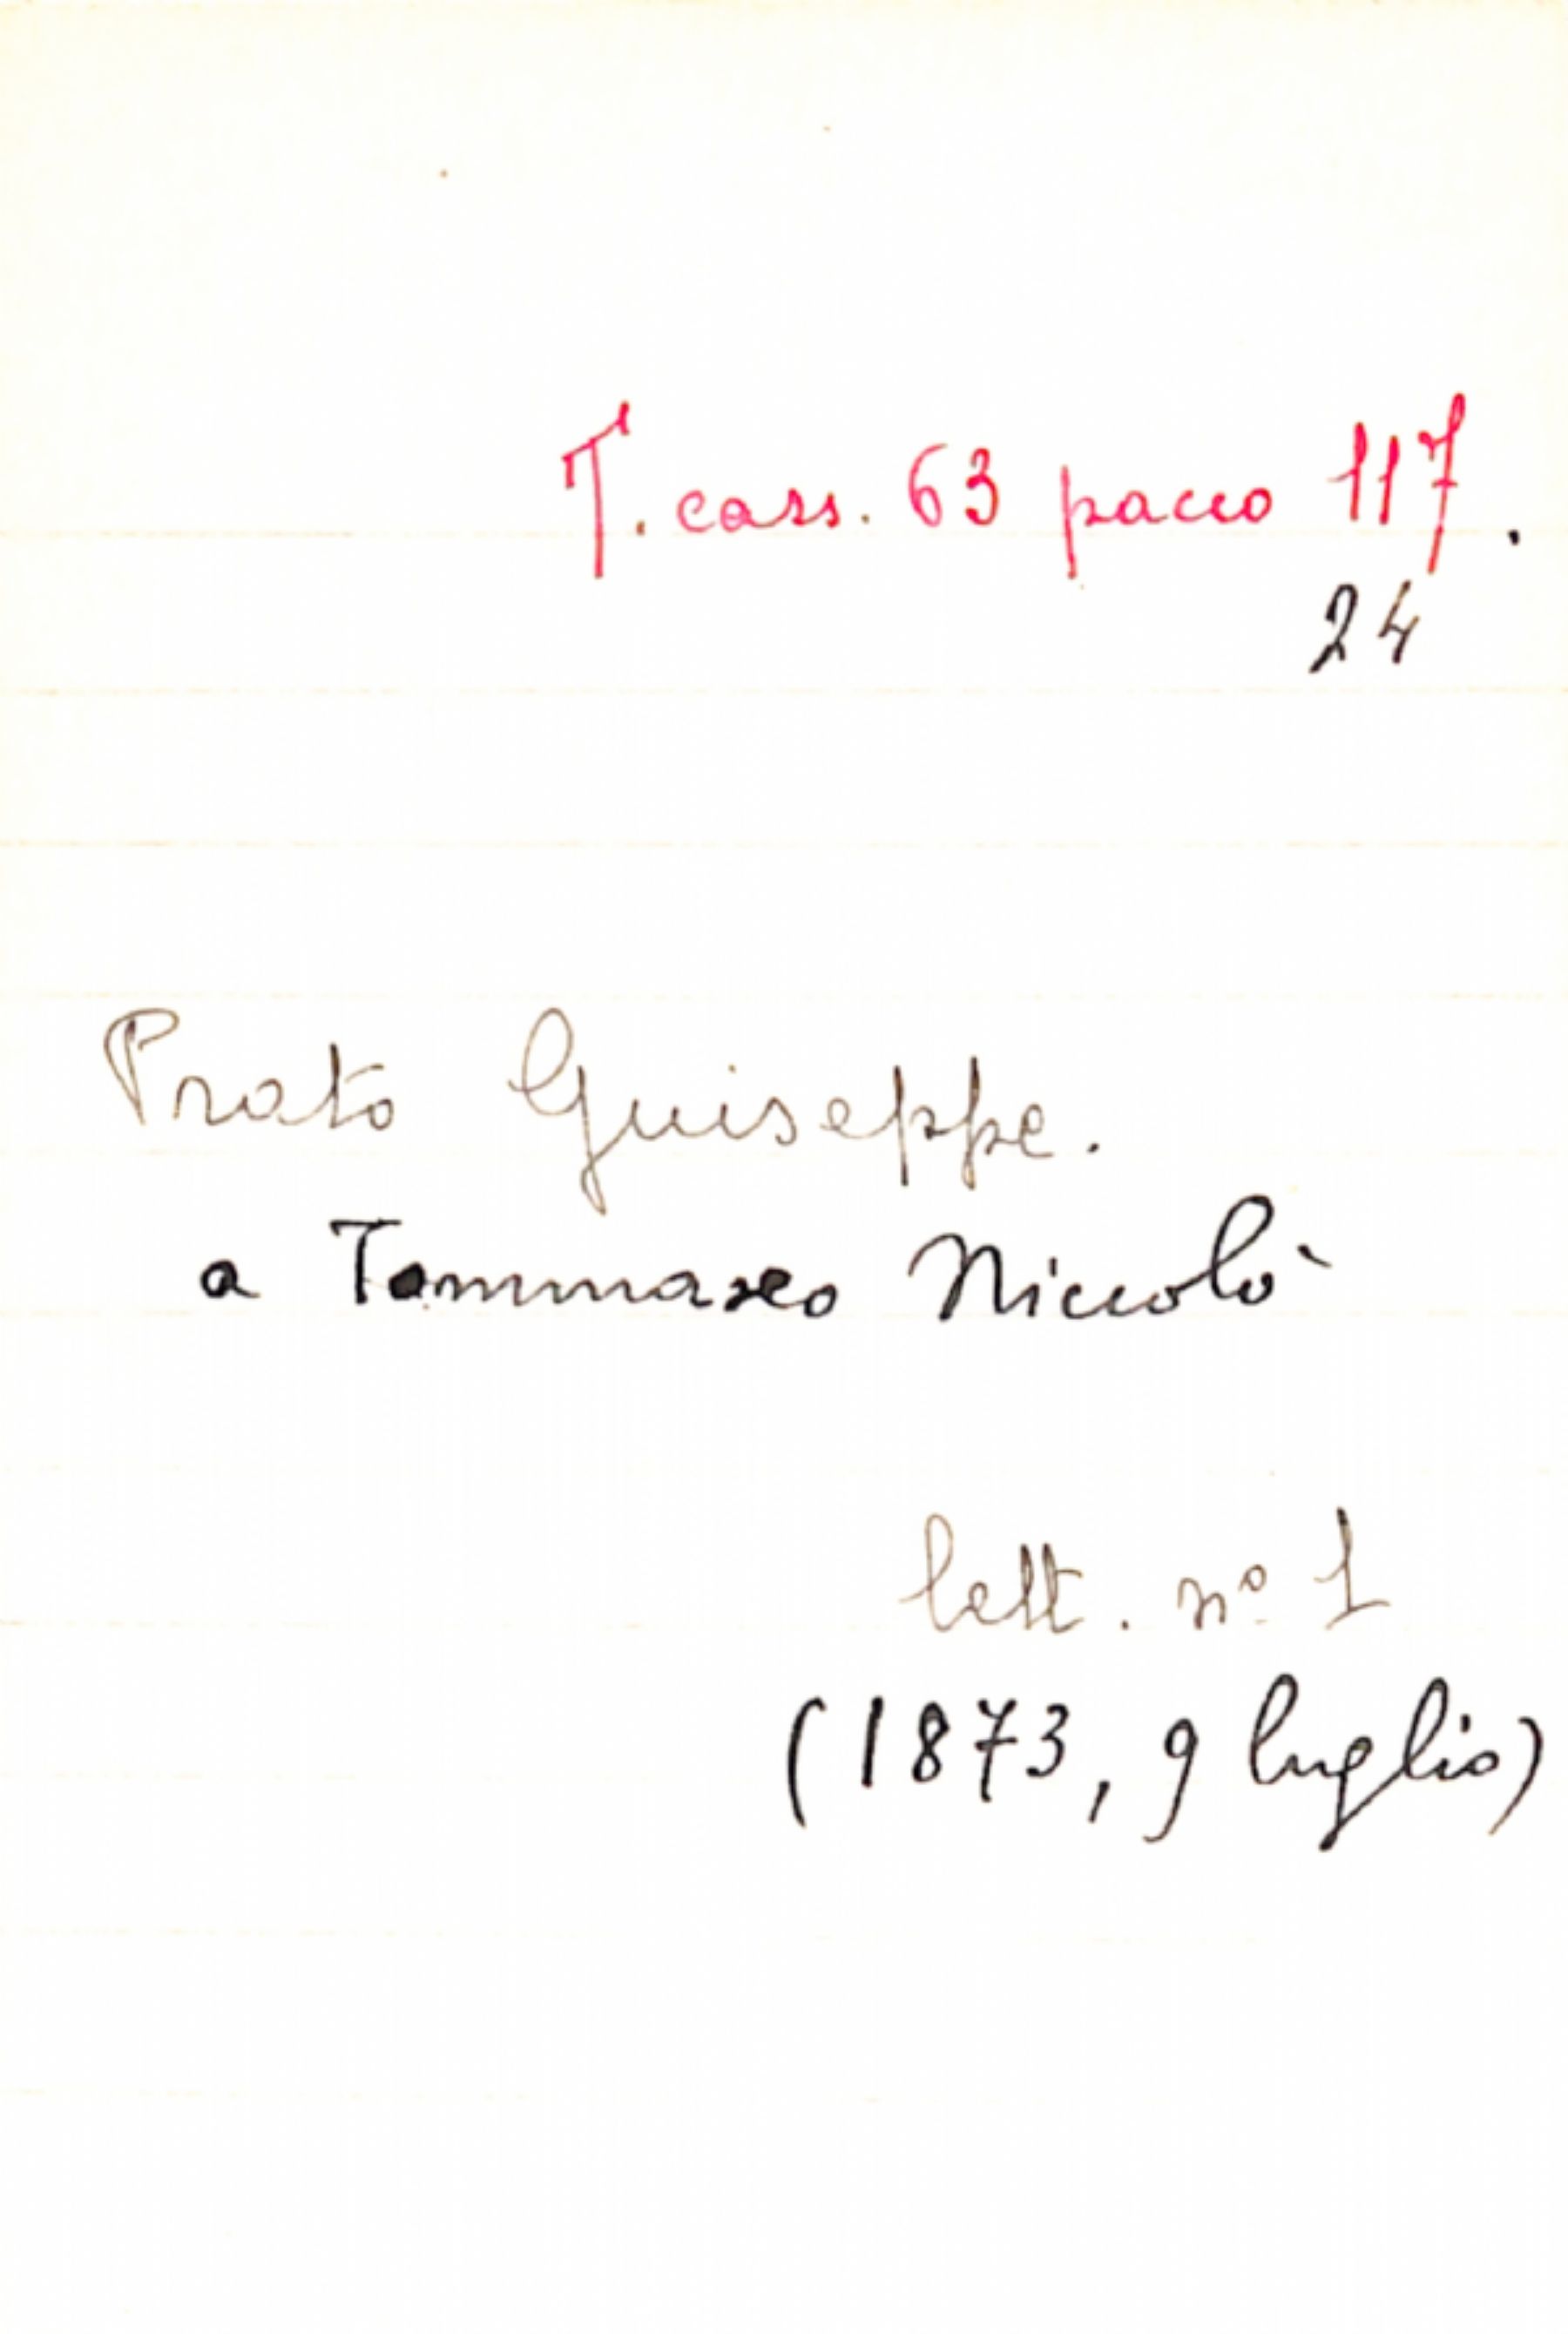 T. cass. 63 pacco 117.
24
Prato Guiseppe.
a Tommaseo Niccolò
lett. nº 1
(1873, 9 luglio)